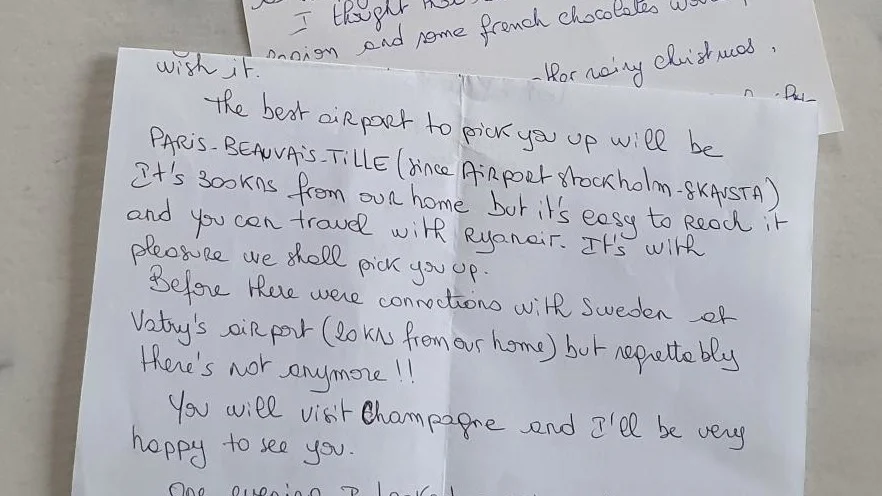 I thought
and some french chocolates
rainy christmas,
wish it.
The best airport to pick you up will be
PARIS-BEAUVAIS-TILLE (since AiRport stockholm-SKAVSTA)
It's 300KMs from our home but it's easy to reach it
and you can travel with Ryanair. It's with
pleasure we shall pick you up.
Before there were connections with Sweden at
Vatry's airport (20KM from our home) but regrettably
there's not anymore!!
You will visit Champagne and I'll be very
happy to see you.
One evening I